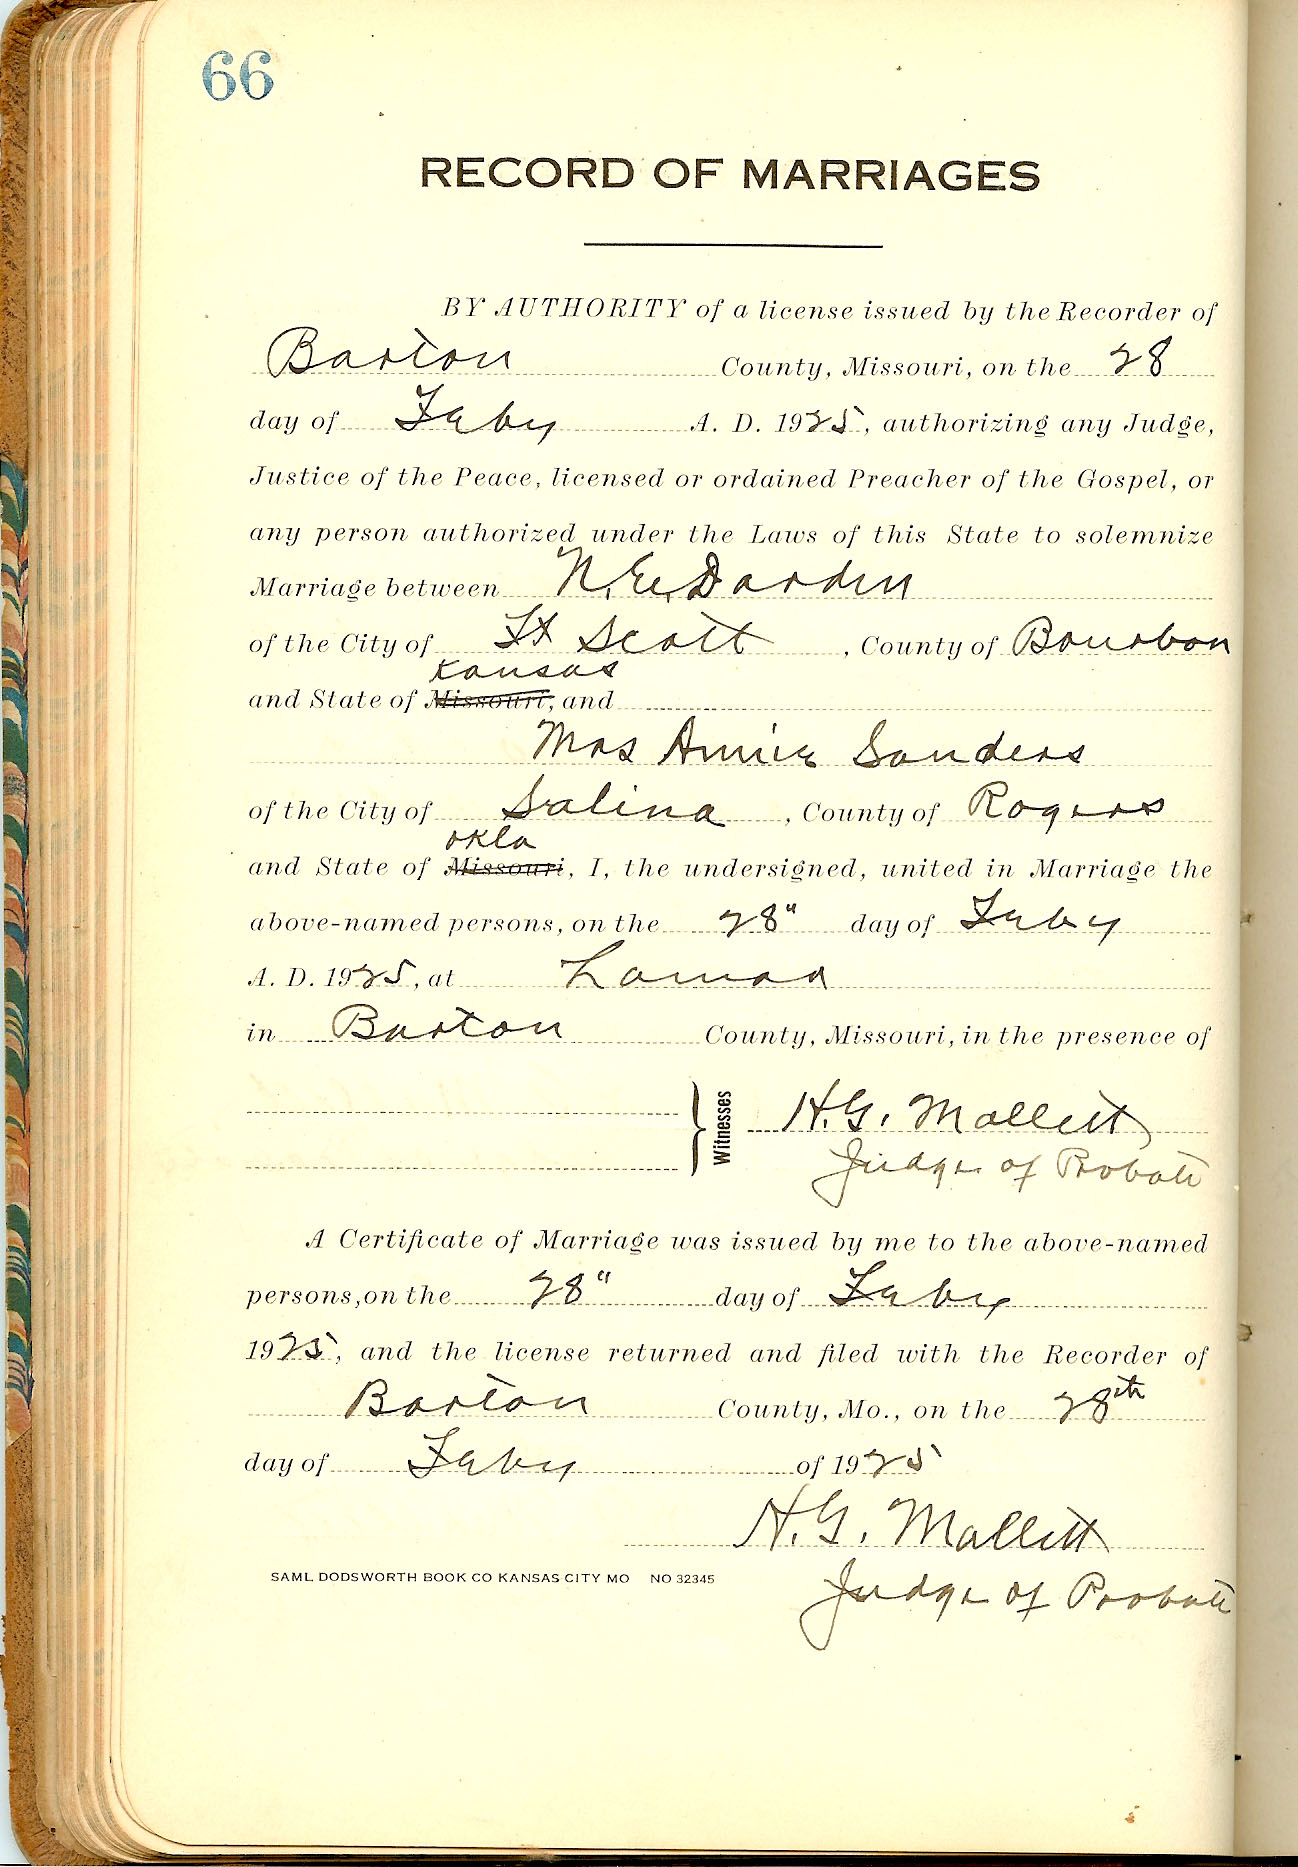 66
RECORD OF MARRIAGES
BY AUTHORITY of a license issued by the Recorder of
Barton County, Missouri, on the 28
day of Feby A. D. 1925, authorizing any Judge,
Justice of the Peace, licensed or ordained Preacher of the Gospel, or
any person authorized under the Laws of this State to solemnize
Marriage between N. E. Darden
of the City of Ft Scott, County of Bourbon
Kansas
and State of Missouri, and
Mrs Annie Sanders
of the City of Salina, County of Rogers
Okla
and State of Missouri, I, the undersigned, united in Marriage the
above-named persons, on the 28" day of Feby
A. D. 1925, at Lamar
in Barton County, Missouri, in the presence of
Witnesses H. G. Mallett
Judge of Probate
A Certificate of Marriage was issued by me to the above-named
persons, on the 28" day of Feby
1925, and the license returned and filed with the Recorder of
Barton County, Mo., on the 28th
day of Feby of 1925
H. G. Mallett
SAML DODSWORTH BOOK CO KANSAS CITY MO NO 32345
Judge of Probate